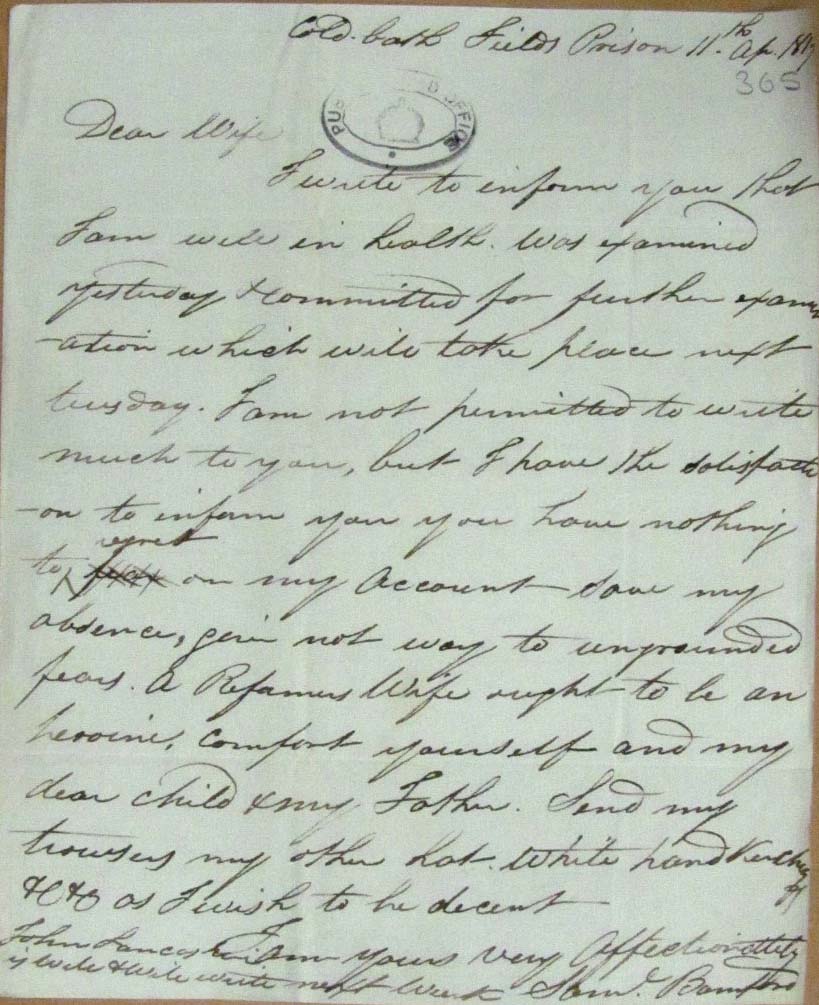 Cold-bath Fields Prison 11.th Ap. 1817
365
PUB D OFFICE
Dear Wife
I write to inform you that
I am well in health. Was examined
yesterday & committed for further exami
-ation which will take place next
tuesday. I am not permitted to write
much to you, but I have the satisfacti
-on to inform you you have nothing
regret
to fear on my Account save my
absence, give not way to ungrounded
fears. A Reformers Wife ought to be an
heroine, comfort yourself and my
dear child & my Father. Send my
trowsers my other hat. White handkerchief
&c &c as I wish to be decent
I am yours very Affectionately
Saml. Bamford
John Lancashire
is well & will write next week